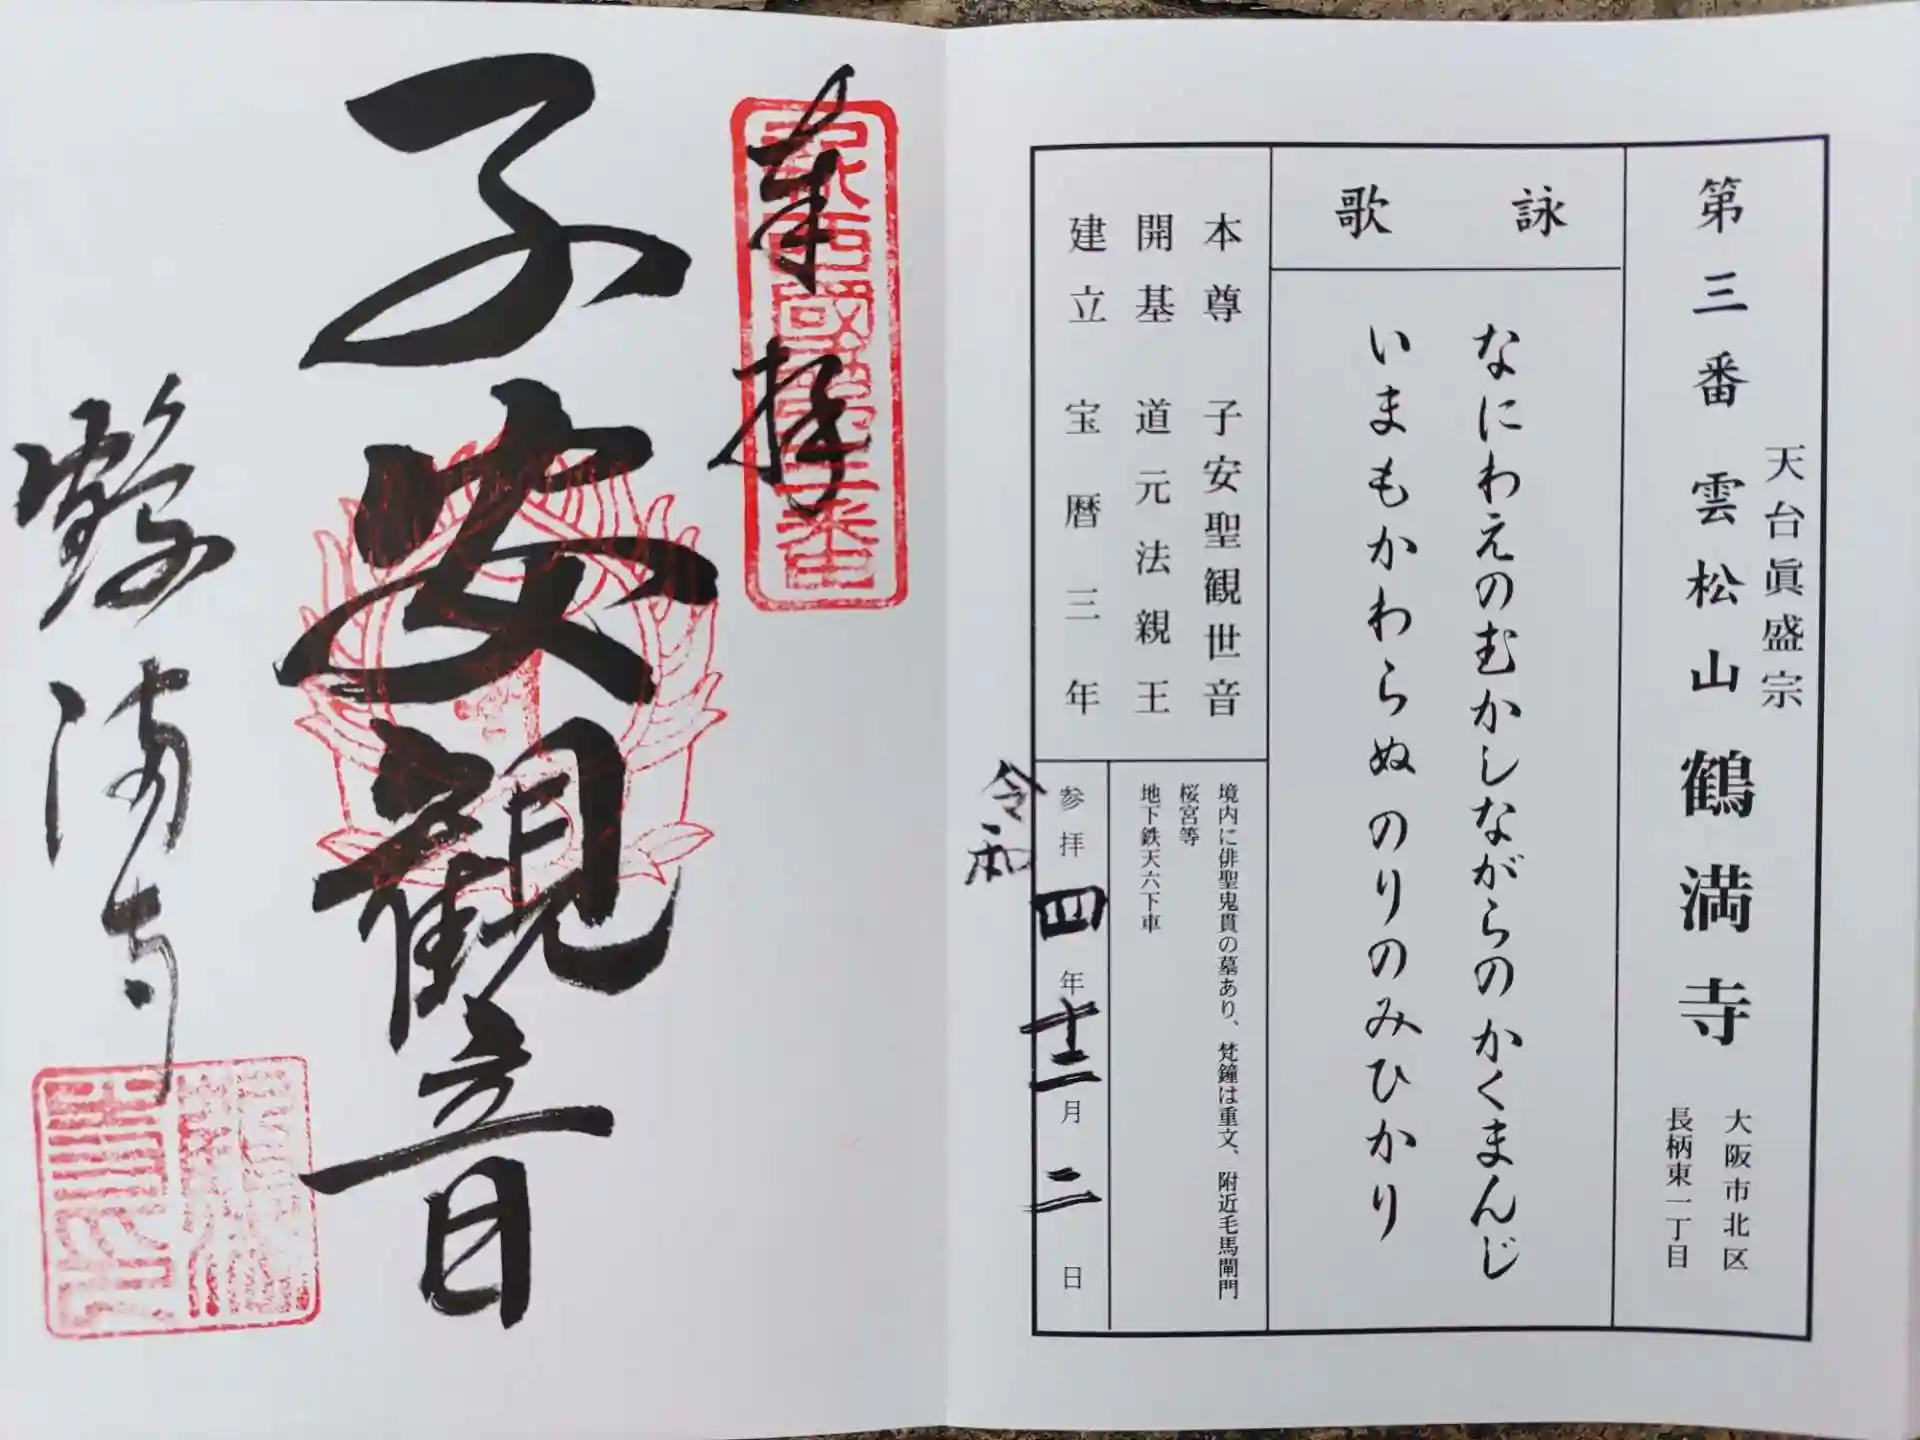 第三番 雲松山 鶴満寺
天台眞盛宗
大阪市北区
長柄東一丁目
詠歌
なにわえのむかしながらのかくまんじ
いまもかわらぬのりのみひかり
本尊 子安聖観世音
開基 道元法親王
建立 宝暦三年
境内に俳聖鬼貫の墓あり、梵鐘は重文、附近毛馬閘門
桜宮等
地下鉄天六下車
令和
参拝四年十二月二日
奉拝
子安観音
鶴満寺